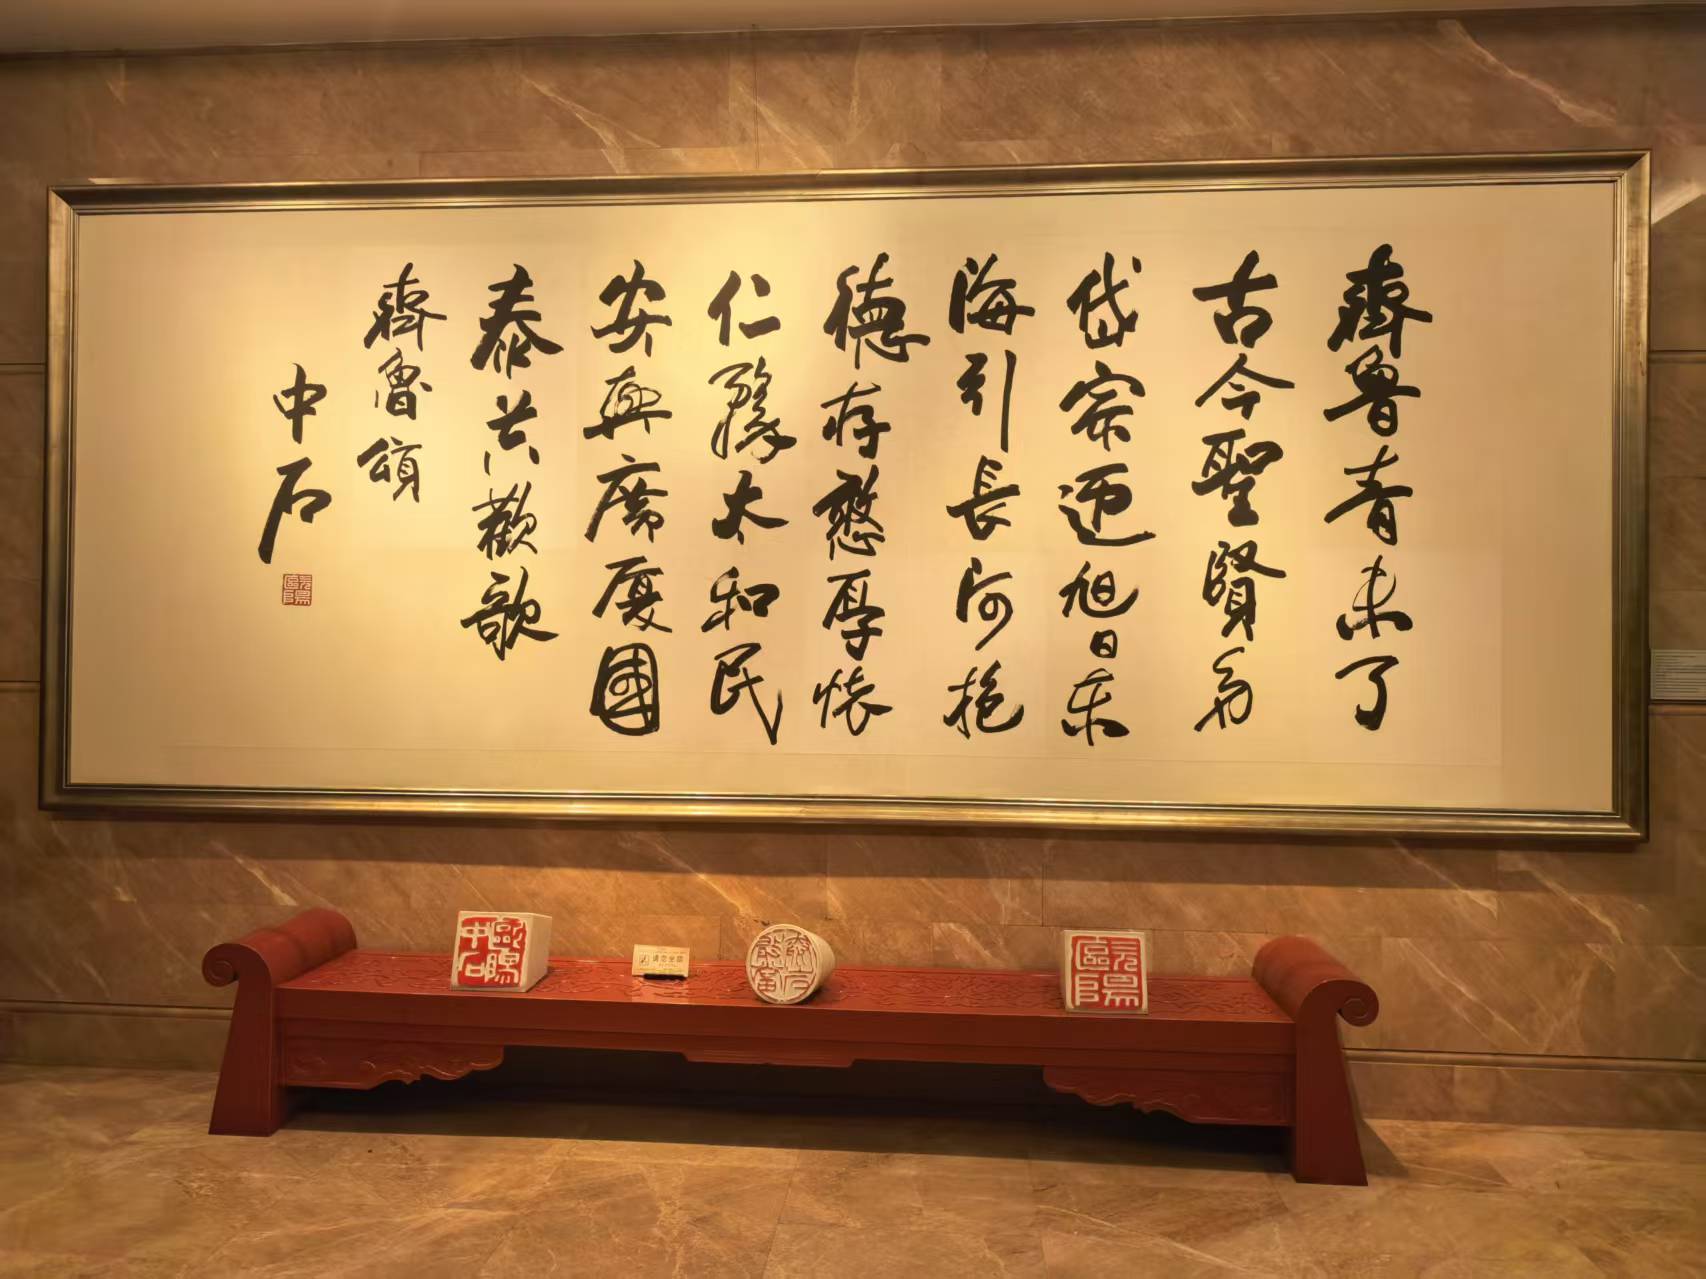 齊魯青未了
古今聖賢多
岱宗迎旭日東
海引長河抱
德存憨厚懷
仁豫太和民
安興廣厦國
泰共歡歌
齊魯頌
中石
歐陽中石